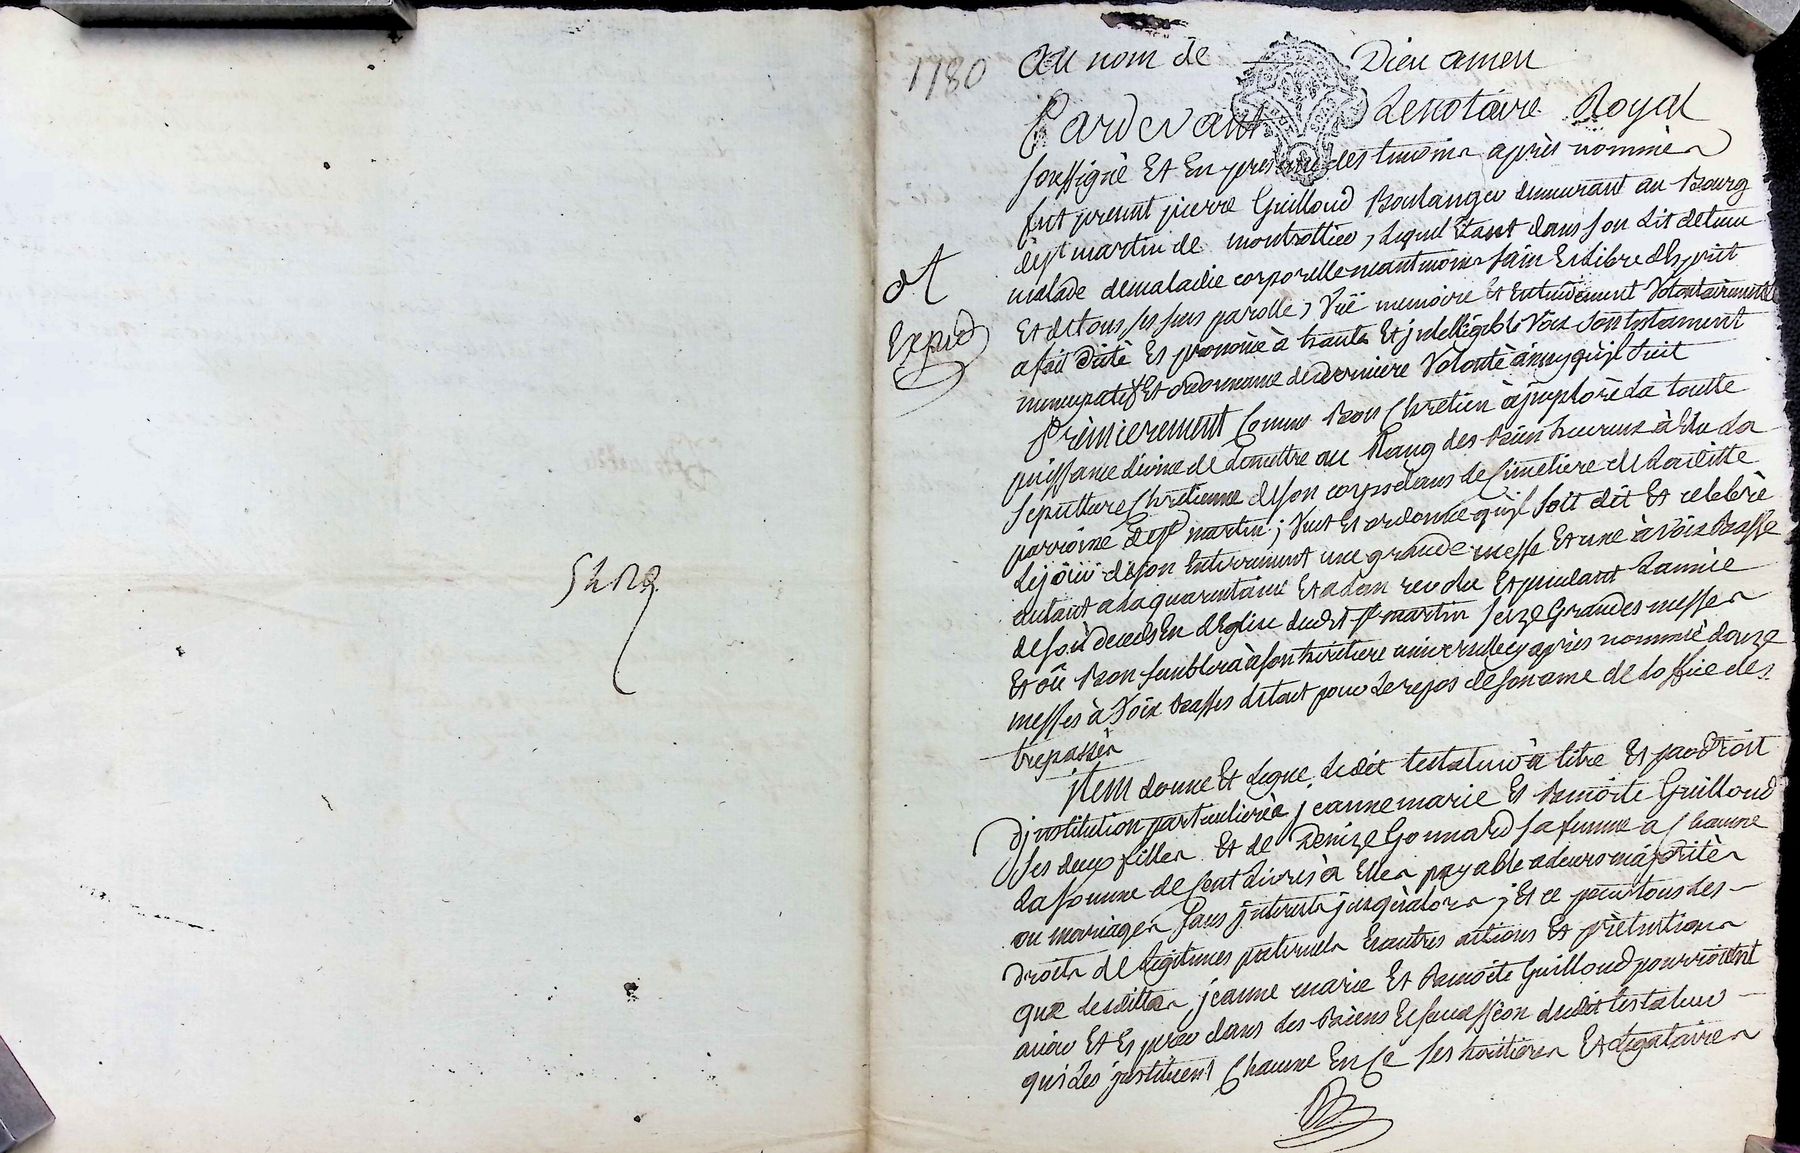 1780
au nom de Dieu amen
Pardevant Le notaire Royal
soussigné Et En presence des temoins après nommés
fut present pierre Guilloud Boulanger demeurant au Bourg
de st martin de montrottier, Lequel Etant dans son Lit detenu
malade de maladie corporelle neantmoins sain Et Libre desprit
Et de tous ses sens parolle, Vüe memoire Et Entendement Volontairement
a fait dicté Et prononcé à haute Et jntelligible Voix Son testament
nuncupatif Et ordonnance de derniere Volonté ainsy qu'jl suit
Prèmierement Comme Bon Chretien à jmploré La toutte
puissance divine de Le mettre au Rang des bien heureux à Elu La
sepulture Chretienne de son corps dans Le Cimetiere de Laditte
parroisse de st martin; Veut Et ordonne qu'jl soit dit Et celebré
Le jour de son Enterrement une grande messe Et une à Voix Basse
autant a La quarantaine Et a Lan revolu Et pendant Lannée
de son deceds En LEglise dudit st martin seize Grandes messes
Et où Bon semblera à son heritiere universelle cy après nommée douze
messes à Voix basses Le tout pour Le repos de son ame de Loffice des
trepassés
jtem donne Et Legue Ledit testateur à titre Et par droit
djnstitution particuliere à jeanne marie Et Benoite Guilloud
ses deux filles Et de Denize Gonnard sa femme a Chacune
La somme de Cent Livres à Elles payable a Leurs majorités
ou mariages sans jnterets jusqu'alors; Et ce pour tous Les
droits de Legitimes paternels Et autres actions Et pretentions
que Lesdittes jeanne marie Et Benoite Guilloud pourroient
avoir Et Esperer dans Les Biens Et succession dudit testateur
qui Les jnstituent Chacune En Ce ses heritieres Et Legataires
Expéd